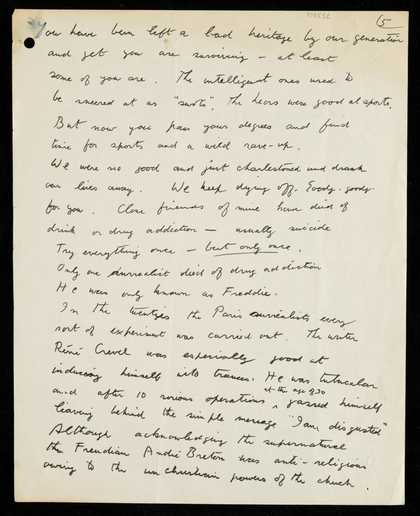 5
You have been left a bad heritage by our generation
and yet you are surviving – at least
some of you are. The intelligent ones used to
be sneered at as "swots". The hears were good at sports.
But now you pass your degrees and find
time for sports and a wild rave-up.
We were no good and just charlestoned and drank
our lives away. We keep dying off. Goody-goody
for you. Close friends of mine have died of
drink or drug addiction – usually suicide
Try everything once – but only once.
Only one surrealist died of drug addiction
He was only known as Freddie.
In the twenties the Paris surrealists every
sort of experiment was carried out. The writer
René Crevel was especially good at
inducing himself into trances. He was tubercular
at the age of 30
and after 10 serious operations gassed himself
leaving behind the simple message "I am disgusted"
Although acknowledging the supernatural
the Freudian André Breton was anti-religious
owing to the unchristian powers of the church.